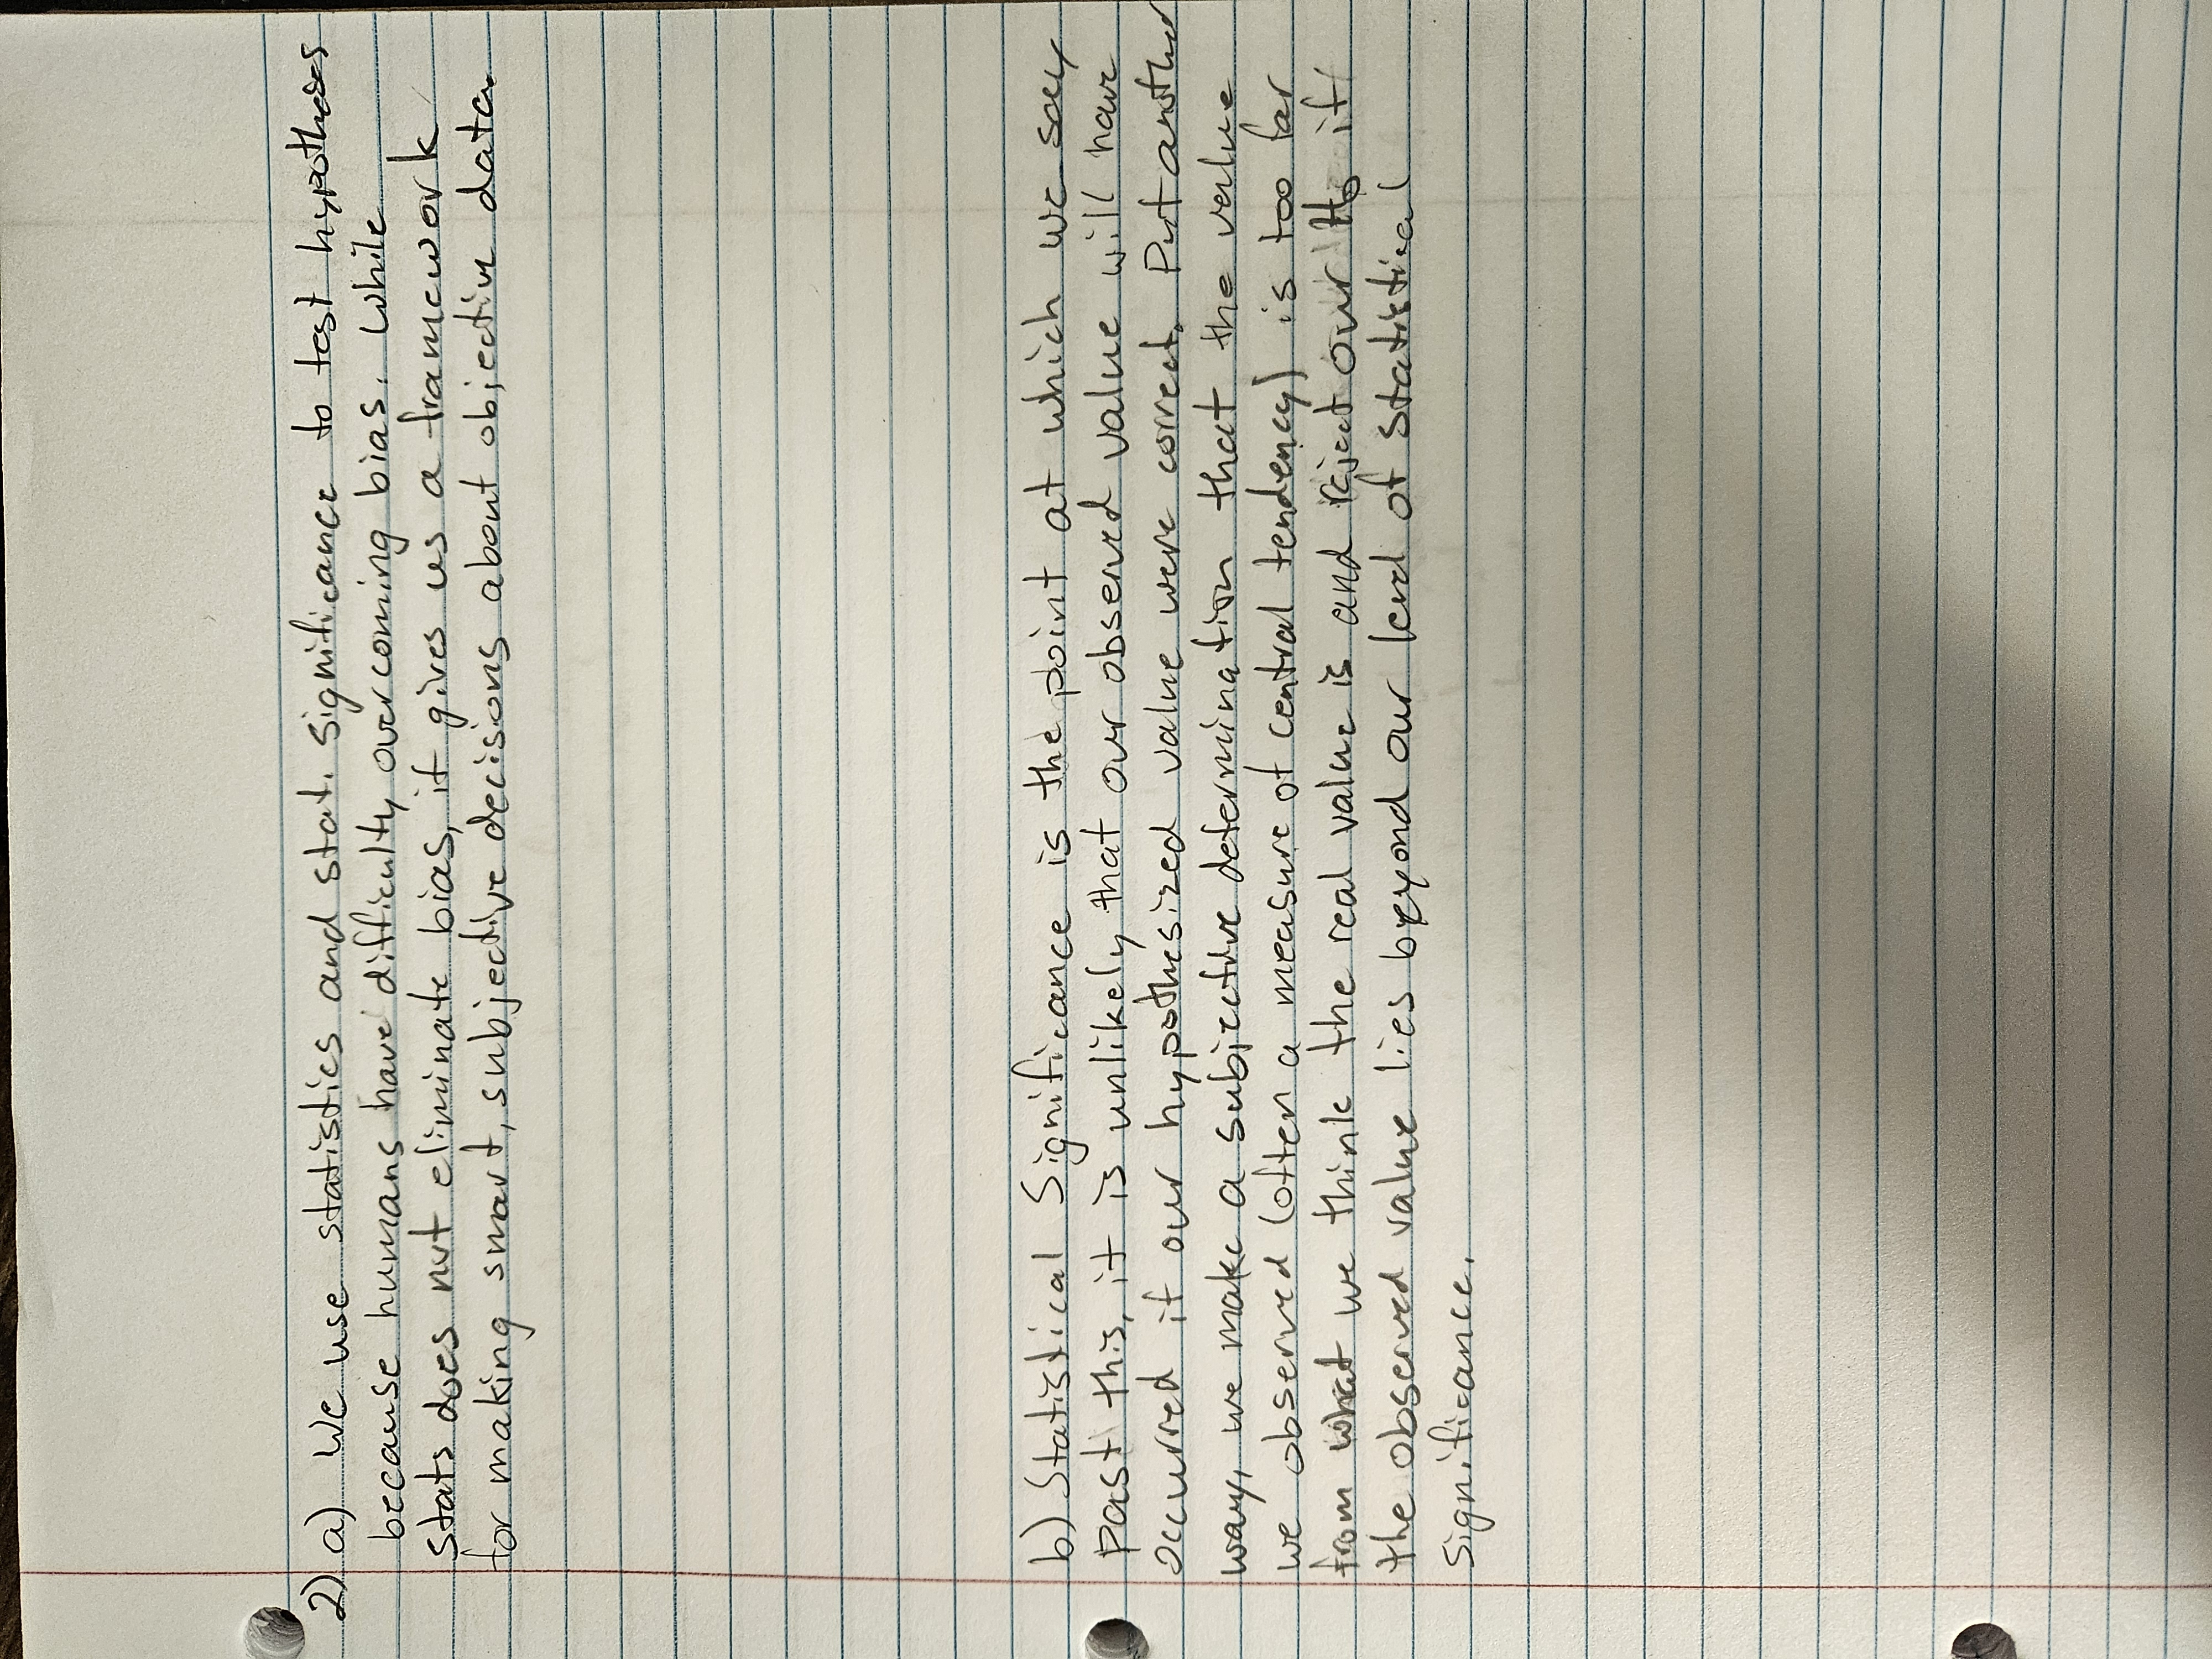 2) a) We use statistics and stat. significance to test hypotheses
because humans have difficulty overcoming bias. While
stats does not eliminate bias, it gives us a framework
for making smart, subjective decisions about objective data.
b) Statistical Significance is the point at which we say
past this, it is unlikely that our observed value will have
occurred if our hypothesized value were correct. Put another
way, we make a subjective determination that the value
we observed (often a measure of central tendency) is too far
from what we think the real value is and reject our H₀ if
the observed value lies beyond our level of statistical
significance.